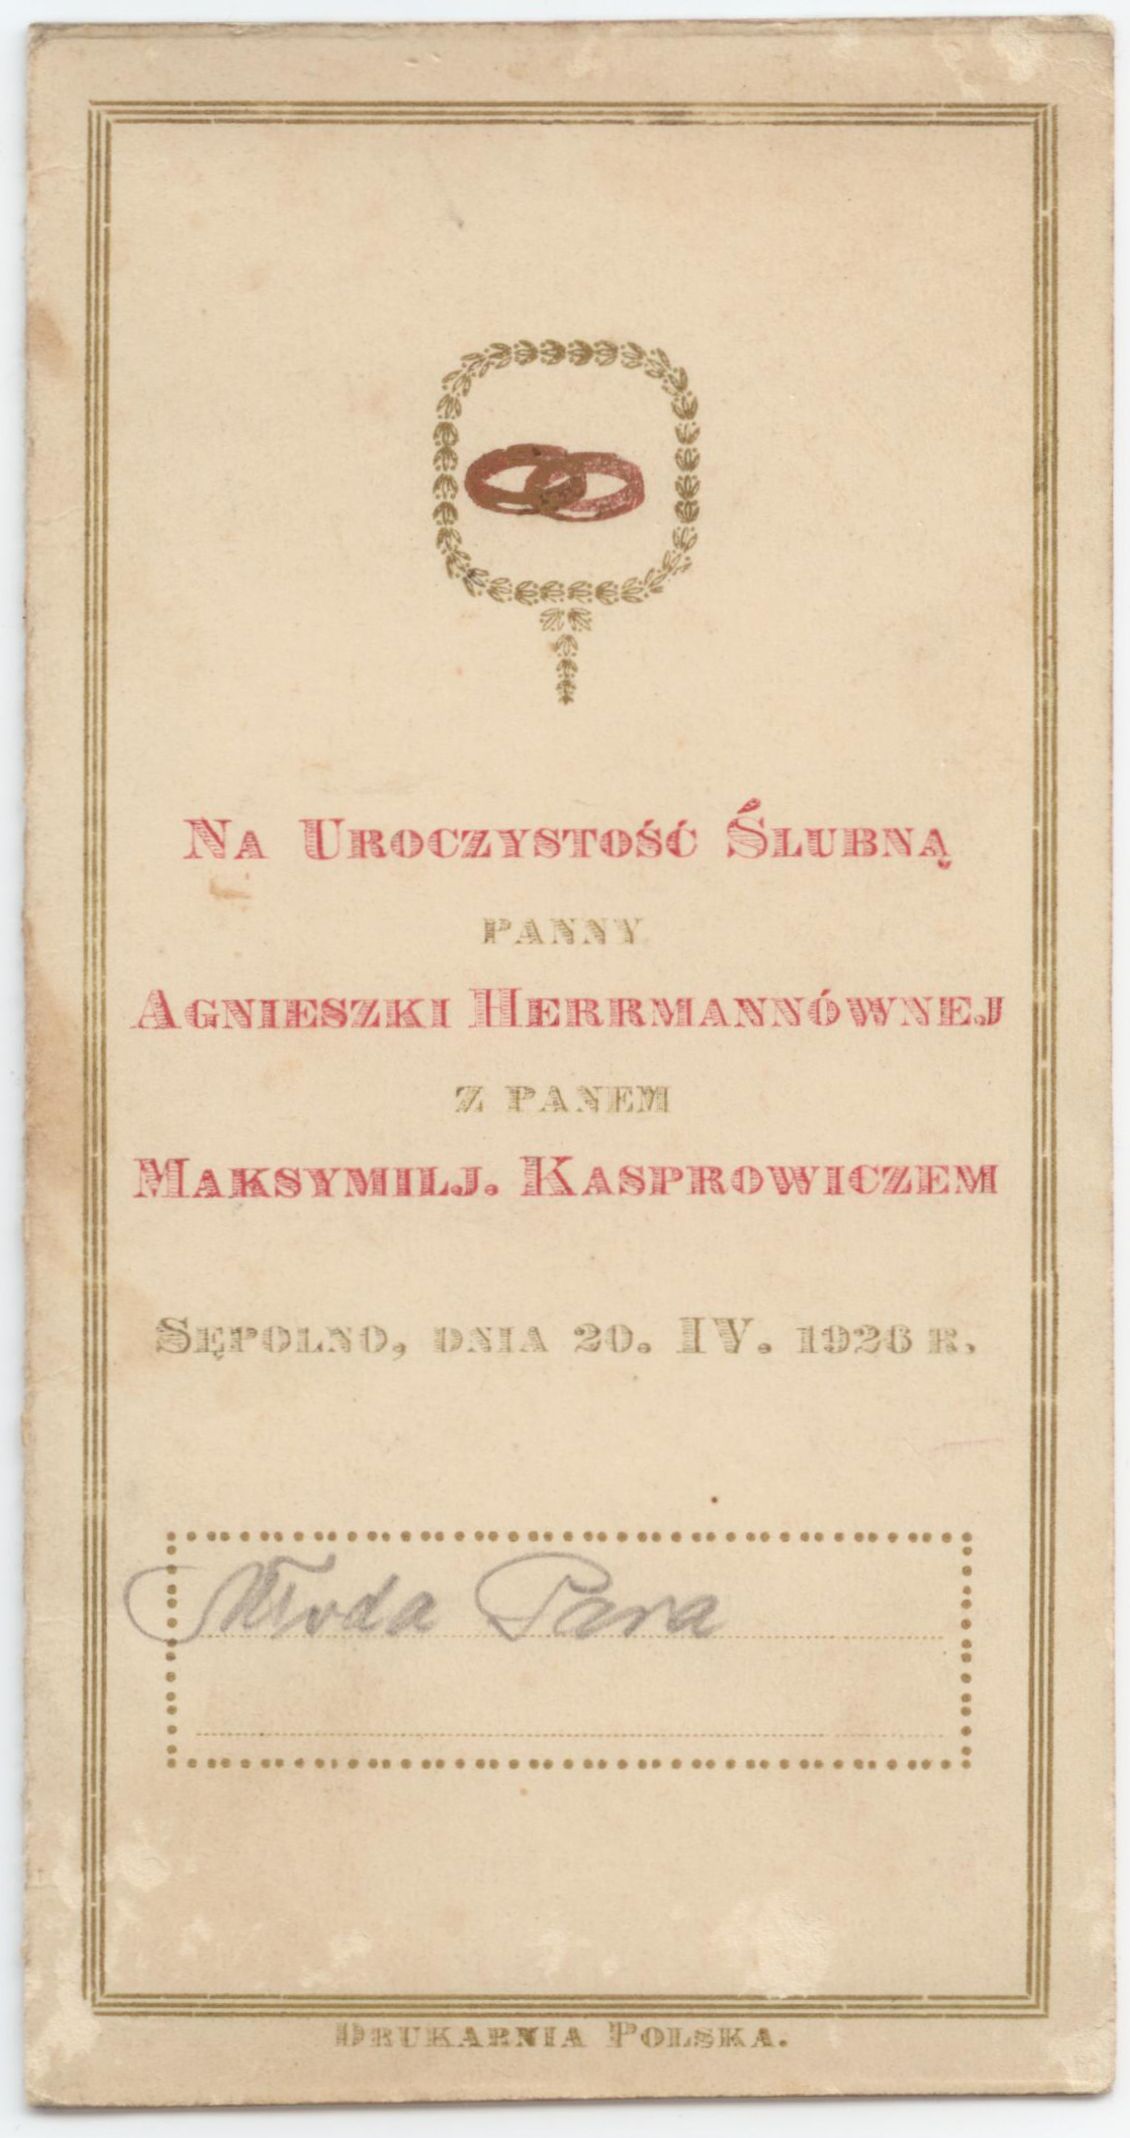 Na Uroczystość Ślubną
panny
Agnieszki Herrmannównej
z panem
Maksymilj. Kasprowiczem
Sępolno, dnia 20. IV. 1926 r.
Młoda Para
Drukarnia Polska.